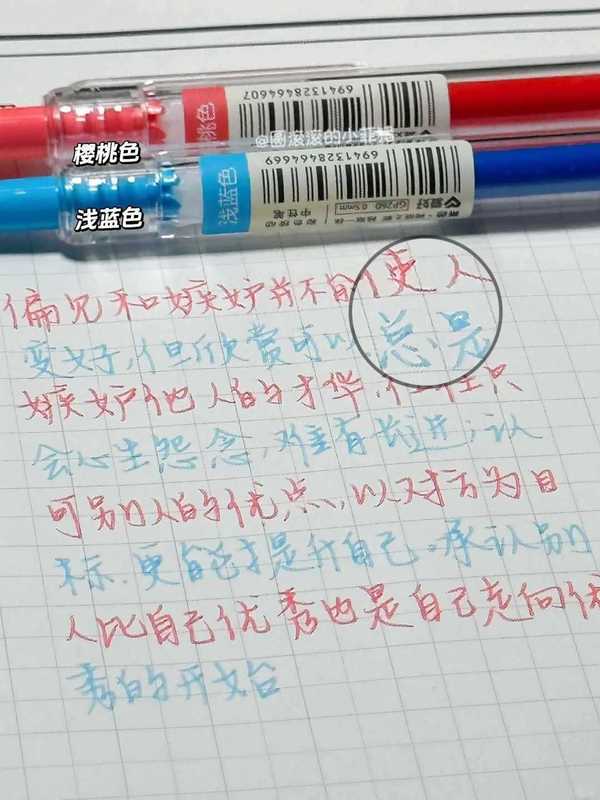 6941328464607
桃色
樱桃色
@圆滚滚的小非
6941328464669
浅蓝色
爱好
GP260 0.5mm
中性笔
浅蓝色
偏见和嫉妒并不能使人
变好,但欣赏可以。总是
嫉妒他人的才华,往往只
会心生怨念,难有长进;认
可别人的优点,以对方为目
标.更能提升自己。承认别
人比自己优秀也是自己走向优
秀的开始